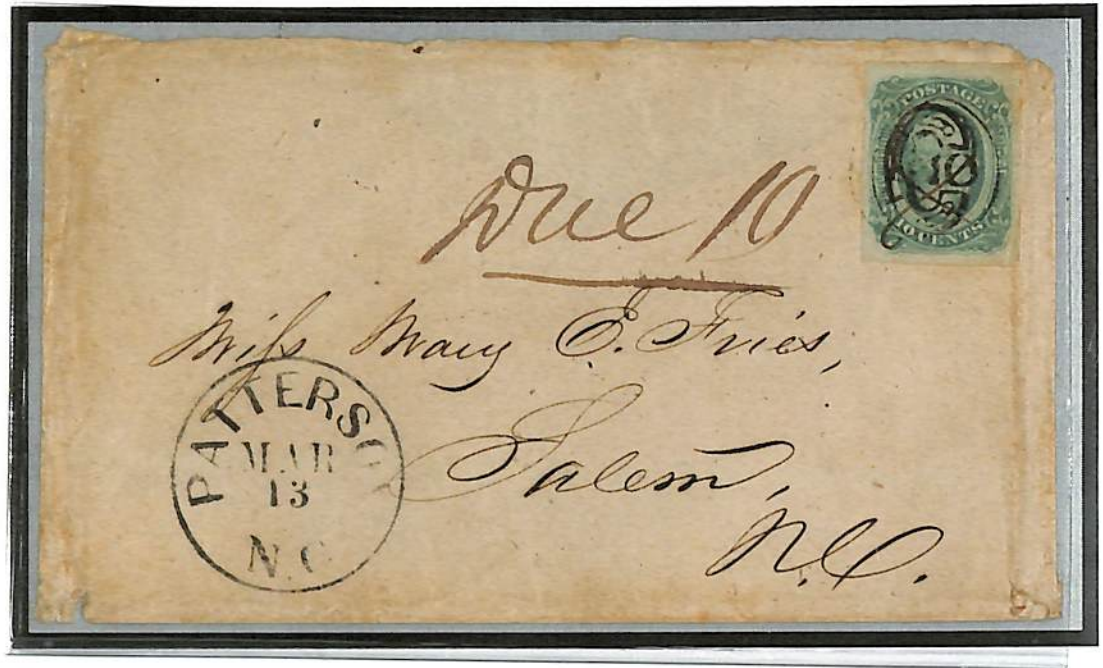 POSTAGE
10 CENTS
Due 10
Miss Mary E. Fries,
Salem,
N.C.
PATTERSON
MAR
13
N.C